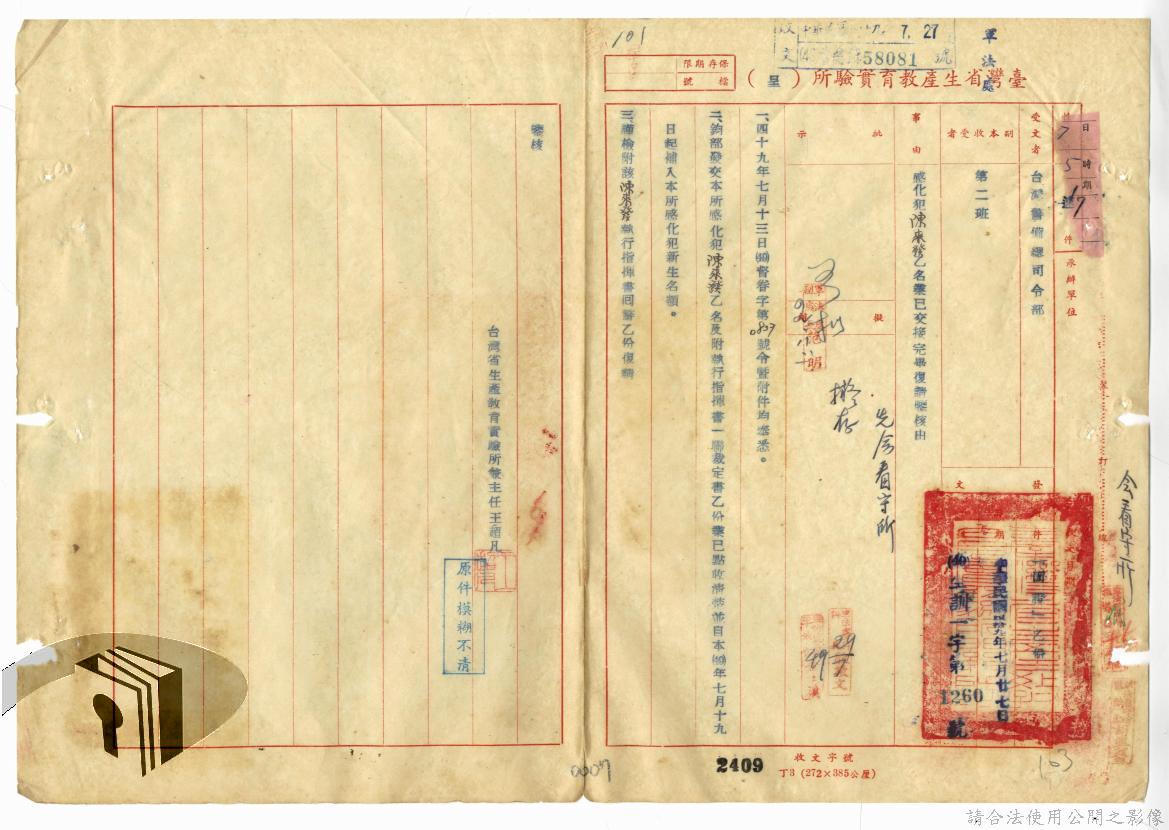 101
7. 27
58081 號
軍法處
臺灣省生產教育實驗所（呈）
保存期限
檔號
受文者
台灣警備總司令部
副本收受者
第二班
事由
感化犯陳來發乙名業已交接完畢復請鑒核由
批示
擬
先令看守所
擬存
一、四十九年七月十三日(49)督眷字第0807號令暨附件均奉悉。
二、鈞部發交本所感化犯陳來發乙名及附執行指揮書一聯裁定書乙份業已點收清楚並自本(49)年七月十九
日起補入本所感化犯新生名額。
三、謹檢附該陳來發執行指揮書回證乙份復請
鑒核
台灣省生產教育實驗所兼主任王超凡
原件模糊不清
承辦單位
發文
中華民國四拾九年七月廿七日
訓一字第
1260
號
令看守所
收文字號
2409
丁3 (272×385公厘)
0007
103
請合法使用公開之影像